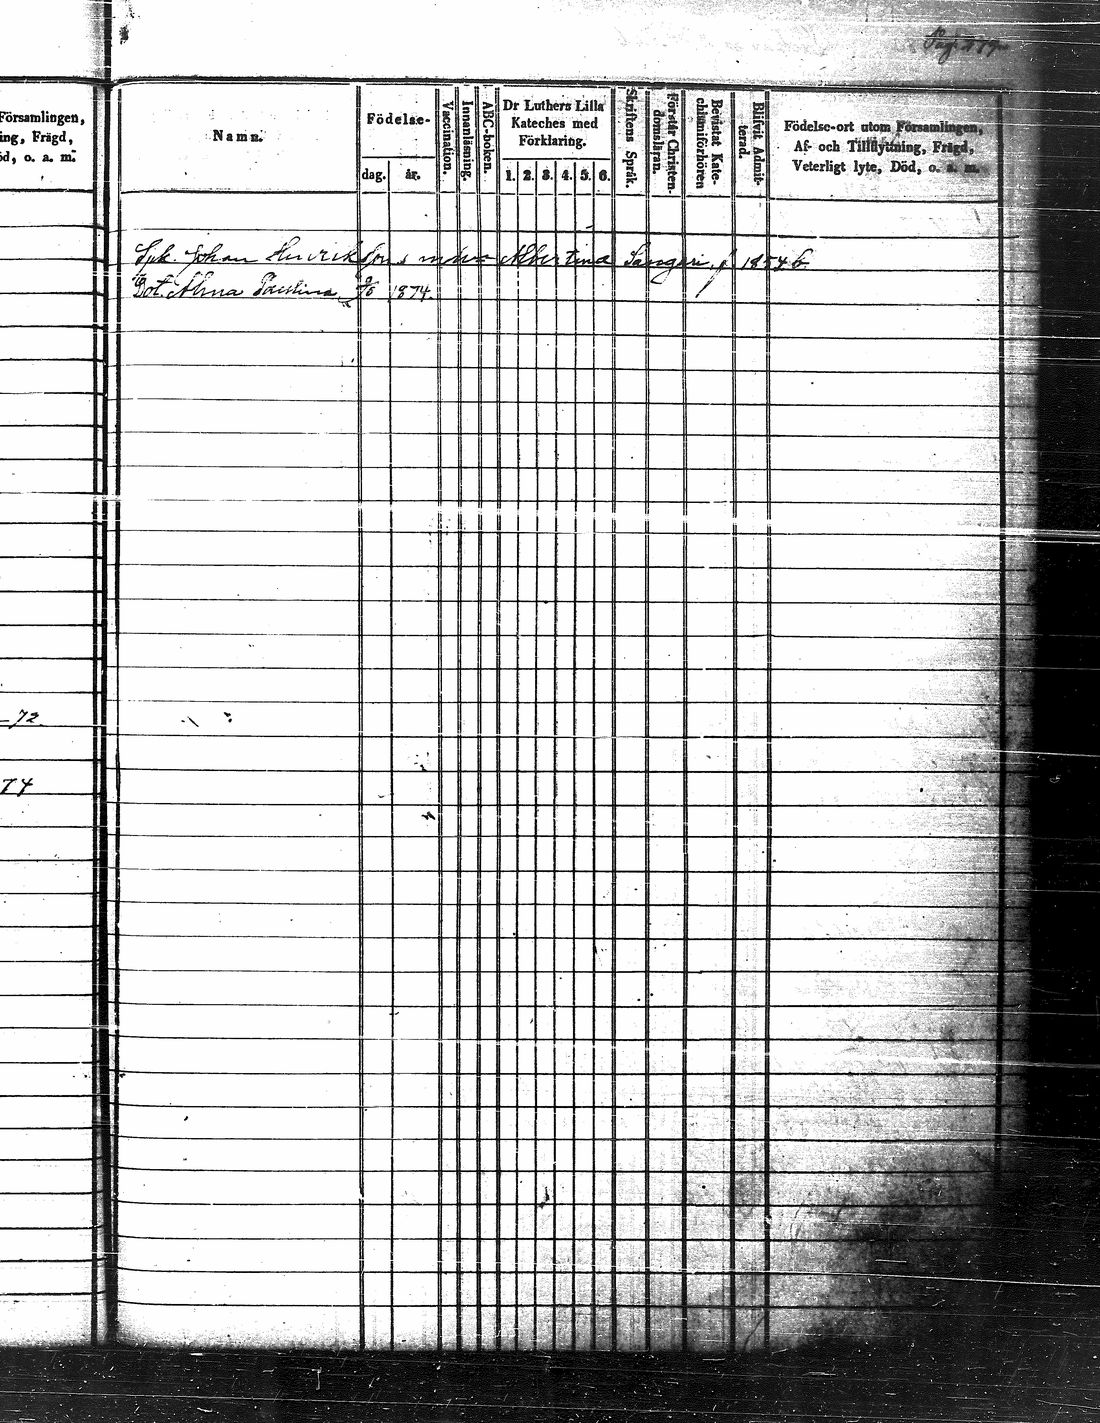 Pag.
Församlingen,
ing, Frägd,
öd, o. a. m.
Namn.
Födelse-
dag.
år.
Vaccination.
Innanläsning.
ABC-boken.
Dr Luthers Lilla
Kateches med
Förklaring.
1. 2. 3. 4. 5. 6.
Skriftens Språk.
Förstår Christen-
domsläran.
Bevistat Kate-
chismiförhören
Blifvit Admit-
terad.
Födelse-ort utom Församlingen,
Af- och Tillflyttning, Frägd,
Veterligt lyte, Död, o. a. m.
Johan Henrik Albertina 1854
Dot. Alma 1874.
72.
74